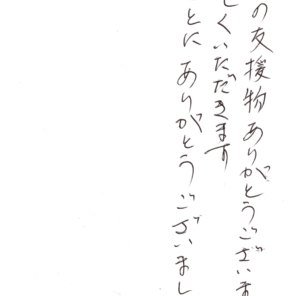 の友援物ありがとうございま
くいただきます
とにありがとうございまし